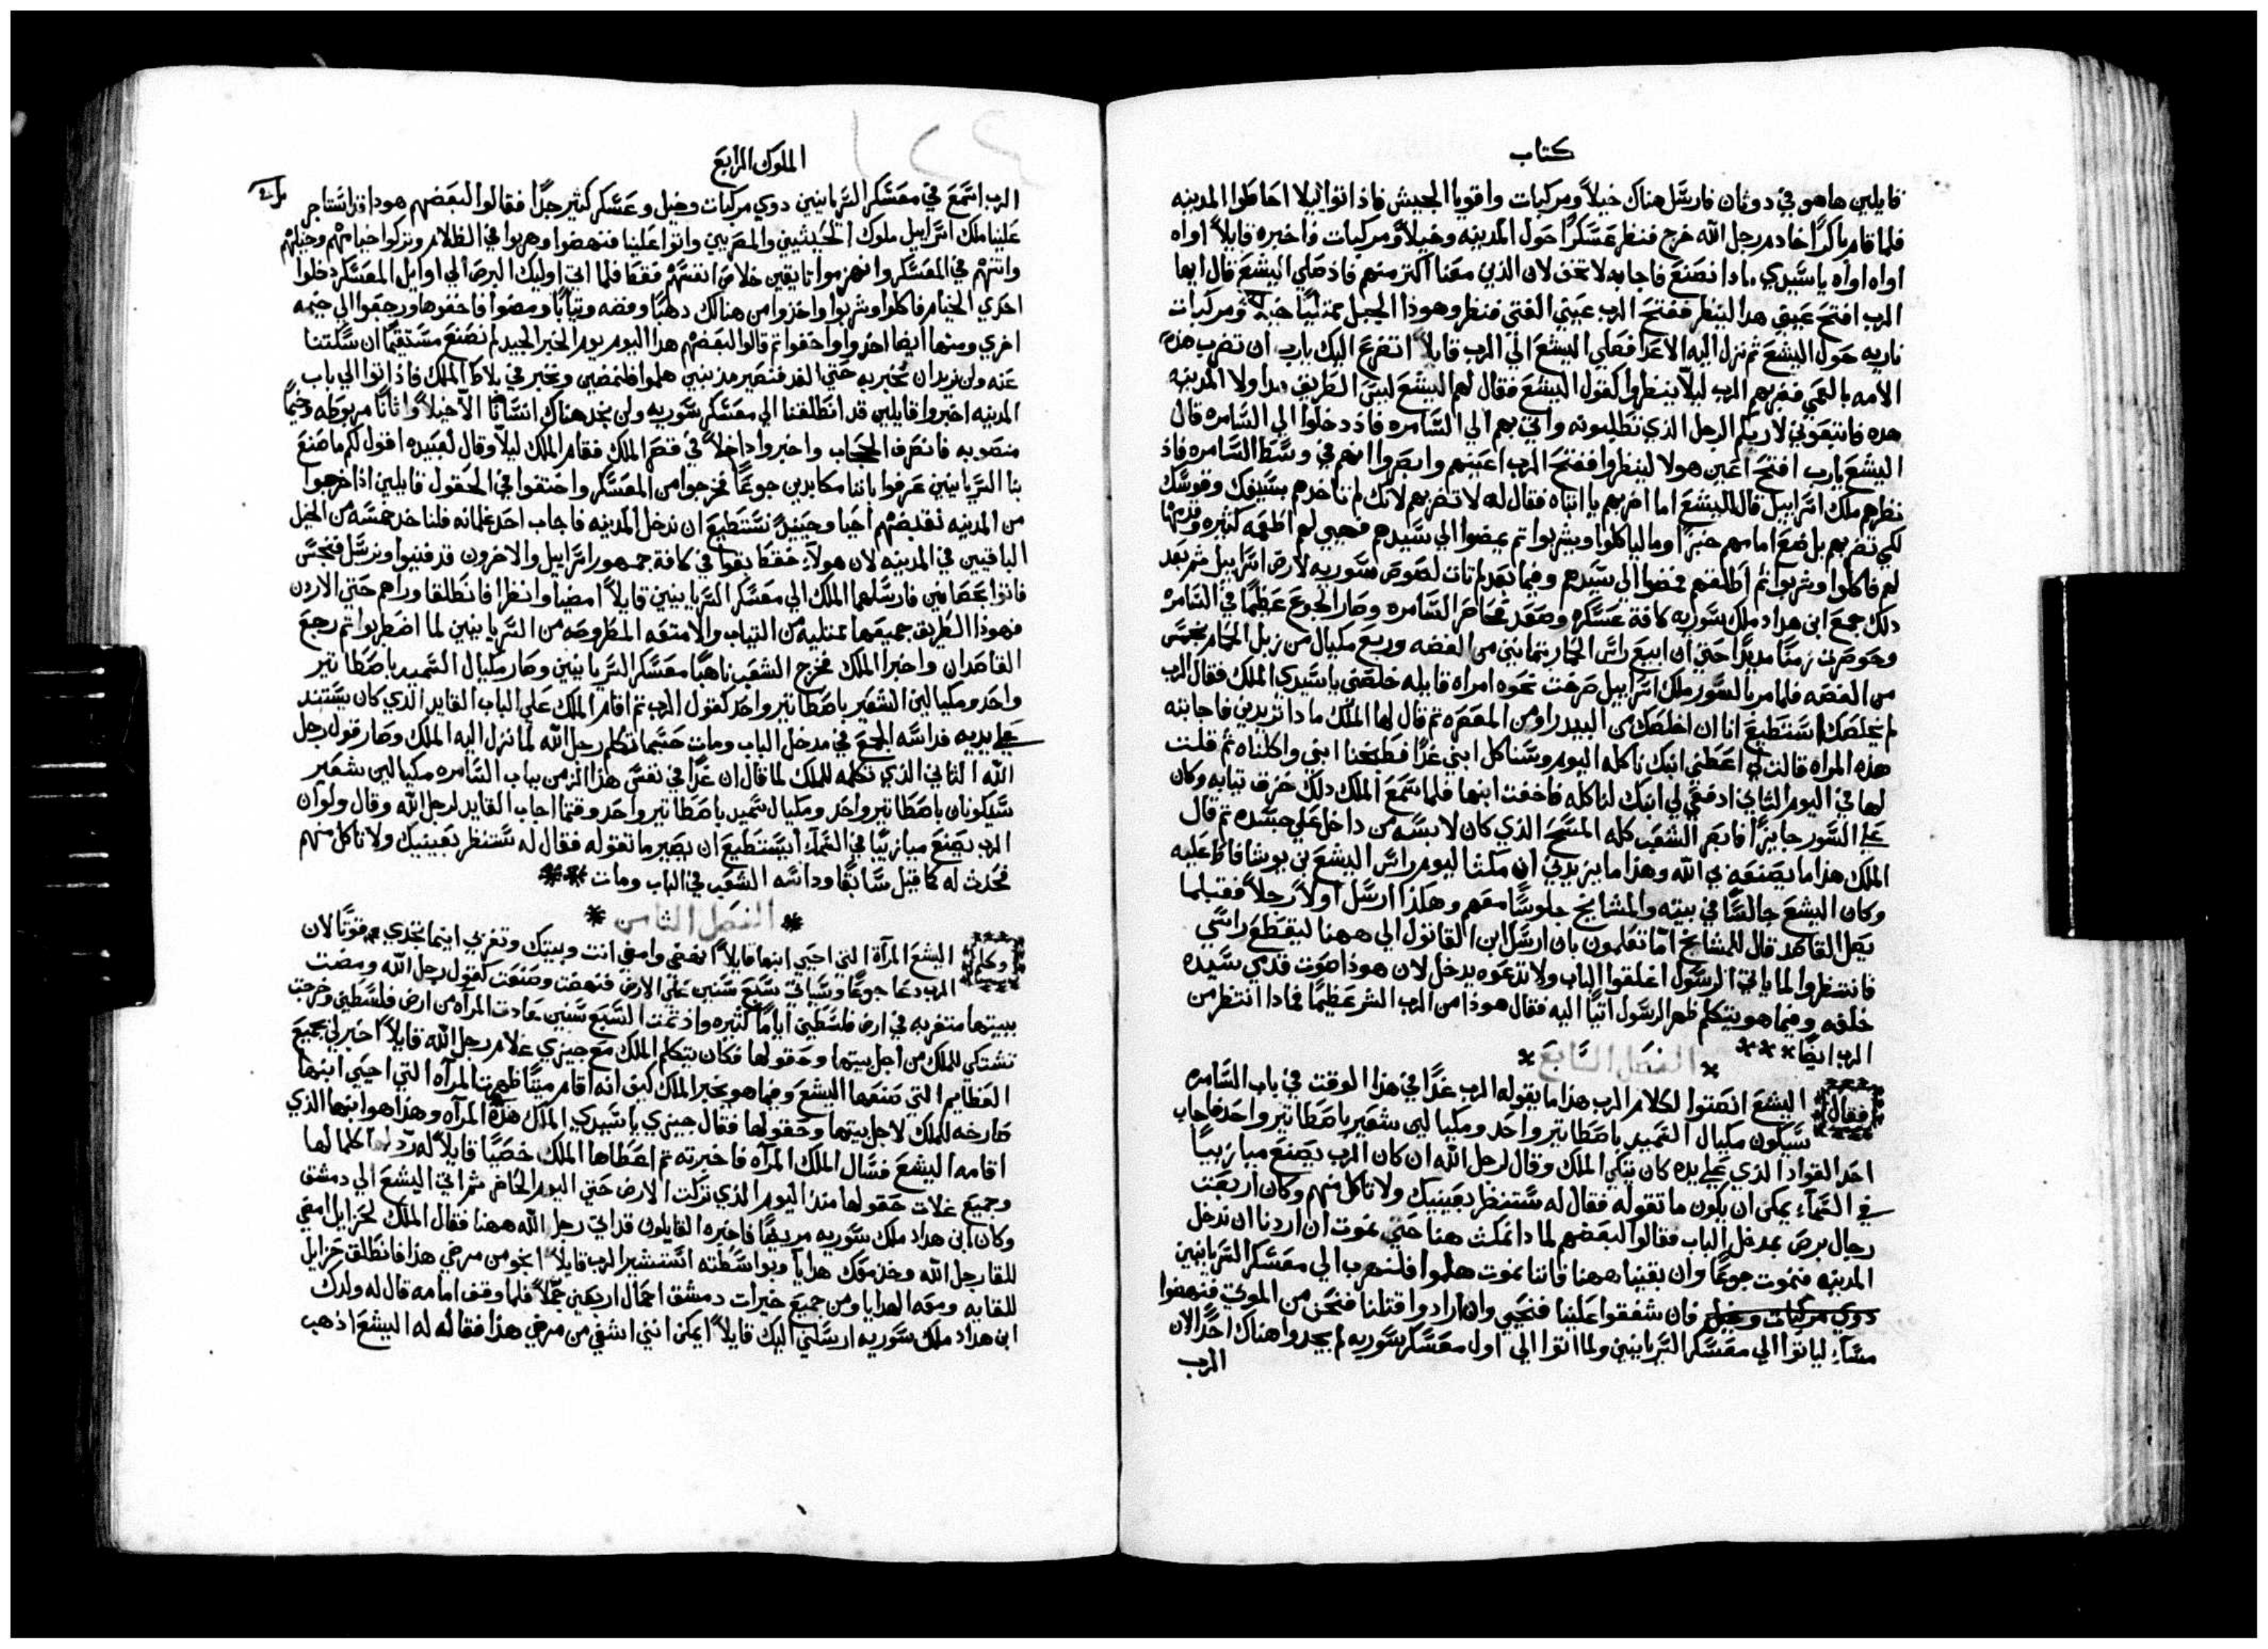 كتاب
قايلين هاهو في دوثان فارسل هناك خيلاً ومركبات واقويا الجيش فاذ اتوا ليلا احاطوا المدينه
فلما قام باكراً خادم رجل الله خرج فنظر عسكراً حول المدينه وخيلاً ومركبات فاخبره قايلاً اواه
اواه اواه ياسيدي مادا نصنع فاجابه لا تخف لان الذي معنا اكتر منهم فاذ صلي اليشع قال ايها
الرب افتح عيني هدا لينظر ففتح الرب عيني الفتي فنظر وهوذا الجبل ممتلياً خيلاً ومركبات
ناريه حول اليشع ثم نزل اليه الاعدا فصلي اليشع الي الرب قايلاً اتضرع اليك يارب ان تضرب هذه
الامه بالعمي فضربهم الرب ليلاً ينظروا كقول اليشع فقال لهم اليشع ليس الطريق هدا ولا المدينه
هده فاتبعوني لاريكم الرجل الذي تطلبونه واتي بهم الي السامره فاذ دخلوا الي السامره قال
اليشع يارب افتح اعين هولا لينظروا ففتح الرب اعينهم وابصروا انهم في وسط السامره فاذ
نظرهم ملك اسرابيل قال لاليشع اما اضربهم يا ابتاه فقال له لا تضربهم لانك لم تاخدهم بسيفك وقوسك
لكي تضربهم بل ضع امامهم خبزاً وما لياكلوا ويشربوا تم يمضوا الي سيدهم فهيي لهم اطعمه كثيره وقدمها
لهم فاكلوا وشربوا ثم اطلقهم فمضوا الي سيدهم وفيما بعد لم تات لصوص سوريه لارض اسرابيل ثم بعد
دلك جمع ابن هداد ملك سوريه كافة عسكره وصعد فحاصر السامره وصار الجوع عظيماً في السامره
وحوصرت زمناً مديداً حتي ان ابيع راس الحمار بتمانين من الفضه وربع مكيال من زبل الحمام بخمس
من الفضه فلما مر بالسور ملك اسرابيل صرخت نحوه امراه قايله خلصني ياسيدي الملك فقال الرب
لم يخلصك استطيع انا ان اخلصك من البيدر او من المعصره تم قال لها الملك مادا تريدين فاجابته
هذه المراه قالت لي اعطي ابنك ناكله اليوم وسناكل ابني غداً فطبخنا ابني واكلناه ثم قلت
لها في اليوم التاني ادفعي لي ابنك لناكله فاخفت ابنها فلما سمع الملك دلك خرق تيابه وكان
علي السور جايزاً فابصر الشعب كله المسح الذي كان لابسه من داخل علي جسده تم قال
الملك هذا ما يصنعه بي الله وهذا ما يزيدني ان مكثا اليوم راس اليشع بن يوشافاط عليه
وكان اليشع جالساً في بيته والمشايخ جلوساً معه وهكذا ارسل اولاً رجلاً فقبلما
يصل القاصد قال للمشايخ اما تعلمون بان ارسل ابن القاتول الي ههنا ليقطع راسي
فانتظروا لما ياتي الرسول اغلقوا الباب ولا تدعوه يدخل لان هوذا صوت قدمي سيده
خلفه وفيما هو يتكلم ظهر الرسول اتياً اليه فقال هوذا من الرب الشر عظيماً فمادا انتظر من
الرب ايضاً ***
* الفصل السابع *
فقال اليشع انصتوا لكلام الرب هذا ما يقوله الرب غداً في هذا الوقت في باب السامره
سيكون مكيال السميد باصطاتير واحد ومكيالين شعير باصطاتير واحد فاجاب
احد القواد الذي علي يده كان يتكي الملك وقال لرجل الله ان كان الرب يصنع ميازيباً
في السماء يمكن ان يكون ما تقوله فقال له ستنظر بعينيك ولا تاكل منهم وكان اربعت
رجال برص بمدخل الباب فقالوا لبعضهم لمادا نمكث هنا حتي نموت ان اردنا ان ندخل
المدينه فنموت جوعاً وان بقينا ههنا فاننا نموت هلموا فلنهرب الي معسكر السريانيين
دوي مركبات وخيل فان شفقوا علينا فنحيي وان ارادوا قتلنا فنحن من الموتي فنهضوا
مساءً لياتوا الي معسكر السريانيين ولما اتوا الي اول معسكر سوريه لم يجدوا هناك احداً لان
الرب
الملوك الرابع
الرب اسمع في معسكر السريانيين دوي مركبات وخيل وعسكر كثير جداً فقالوا لبعضهم هودا قد استاجر
علينا ملك اسرابيل ملوك الحيثيين والمصريين واتوا علينا فنهضوا وهربوا في الظلام وتركوا خيامهم وخيلهم
واتنهم في المعسكر وانهزموا تايقين خلاص انفسهم فقط فلما اتي اوليك البرص الي اوايل المعسكر دخلوا
احدي الخيام فاكلوا وشربوا واخذوا من هنالك دهباً وفضه وتياباً ومضوا فاخفوها ورجعوا الي خيمه
اخري ومنها ايضا اخدوا واخفوا تم قالوا لبعضهم هدا اليوم يوم الخبر الجيد لم نصنع مستقيماً ان سكتنا
عنه ولن نريد ان نخبر به حتي الغد فنصير مذنبين هلموا فلنمضين ونخبر في بلاط الملك فاذ اتوا الي باب
المدينه اخبروا قايلين قد انطلقنا الي معسكر سوريه ولن نجد هناك انساناً الا خيلاً واتاناً مربوطه وخيماً
منصوبه فانصرف الحجاب واخبروا داخلاً في قصر الملك فقام الملك ليلاً وقال لعبيده اقول لكم ما صنع
بنا السريانيين عرفوا باننا مكابدين جوعاً فخرجوا من المعسكر واختفوا في الحقول قايلين اذا خرجوا
من المدينه نقبضهم احيا وحينيذٍ نستطيع ان ندخل المدينه فاجاب احد غلمانه فلناخد خمسه من الخيل
الباقيين في المدينه لان هولاء فقط بقوا في كافة جمهور اسرابيل والاخرون قد فنيوا ونرسل فنجس
فاتوا بحصانين فارسلهما الملك الي معسكر السريانيين قايلاً امضيا وانظرا فانطلقا وراهم حتي الاردن
فهوذا الطريق جميعها ممتليه من التياب والامتعه المطروحه من السريانيين لما اضطربوا تم رجع
القاصدان واخبرا الملك فخرج الشعب ناهباً معسكر السريانيين وصار مكيال السميد باصطاتير
واحد ومكيالين الشعير باصطاتير واحد كقول الرب تم اقام الملك علي الباب القايد الذي كان يستند
علي يديه فداسه الجمع في مدخل الباب ومات حسبما تكلم رجل الله لما نزل اليه الملك وصار قول رجل
الله التاني الذي تكلمه للملك لما قال ان غداً في نفس هذا الزمن بباب السامره مكيالين شعير
سيكونان باصطاتير واحد ومكيال سميد باصطاتير واحد وقتما اجاب القايد لرجل الله وقال ولو ان
الرب يصنع ميازيباً في السماء ايستطيع ان يصير ما تقوله فقال له ستنظر بعينيك ولا تاكل منهم
فحدث له كما قيل سابقاً وداسه الشعب في الباب ومات **
* الفصل الثامن *
وكلم اليشع المرآة التي احيي ابنها قايلاً انهضي وامضي انت وبيتك وتغربي اينما تجدي قوتاً لان
الرب دعا جوعاً وسياتي سبع سنين علي الارض فنهضت وصنعت كقول رجل الله ومضت
ببيتها متغربه في ارض فلسطين اياماً كثيره واذ تمت السبع سنين عادت المرآه من ارض فلسطين وخرجت
تشتكي للملك من اجل بيتها وحقولها فكان يتكلم الملك مع جيزي غلام رجل الله قايلاً اخبرني بجميع
العظايم التي صنعها اليشع وفيما هو يخبر الملك كيف انه اقام ميتاً ظهرت المرآه التي احيي ابنها
صارخه للملك لاجل بيتها وحقولها فقال جيزي ياسيدي الملك هذه المرآه وهذا هو ابنها الذي
اقامه اليشع فسال الملك المرآه فاخبرته تم اعطاها الملك خصياً قايلاً له رد لها كلما لها
وجميع غلات حقولها مند اليوم الذي تركت الارض حتي اليوم الحاضر ثم اتي اليشع الي دمشق
وكان ابن هداد ملك سوريه مريضاً فاخبره القايلون قد اتي رجل الله ههنا فقال الملك لحزايل امضي
للقا رجل الله وخذ معك هدايا وبواسطته استشير الرب قايلاً انجو من مرضي هذا فانطلق حزايل
للقايه ومعه الهدايا ومن جميع خيرات دمشق احمال اربعين جملاً فلما وقف امامه قال له ولدك
ابن هداد ملك سوريه ارسلني اليك قايلاً ايمكن انني اشفي من مرضي هذا فقال له اليشع اذهب